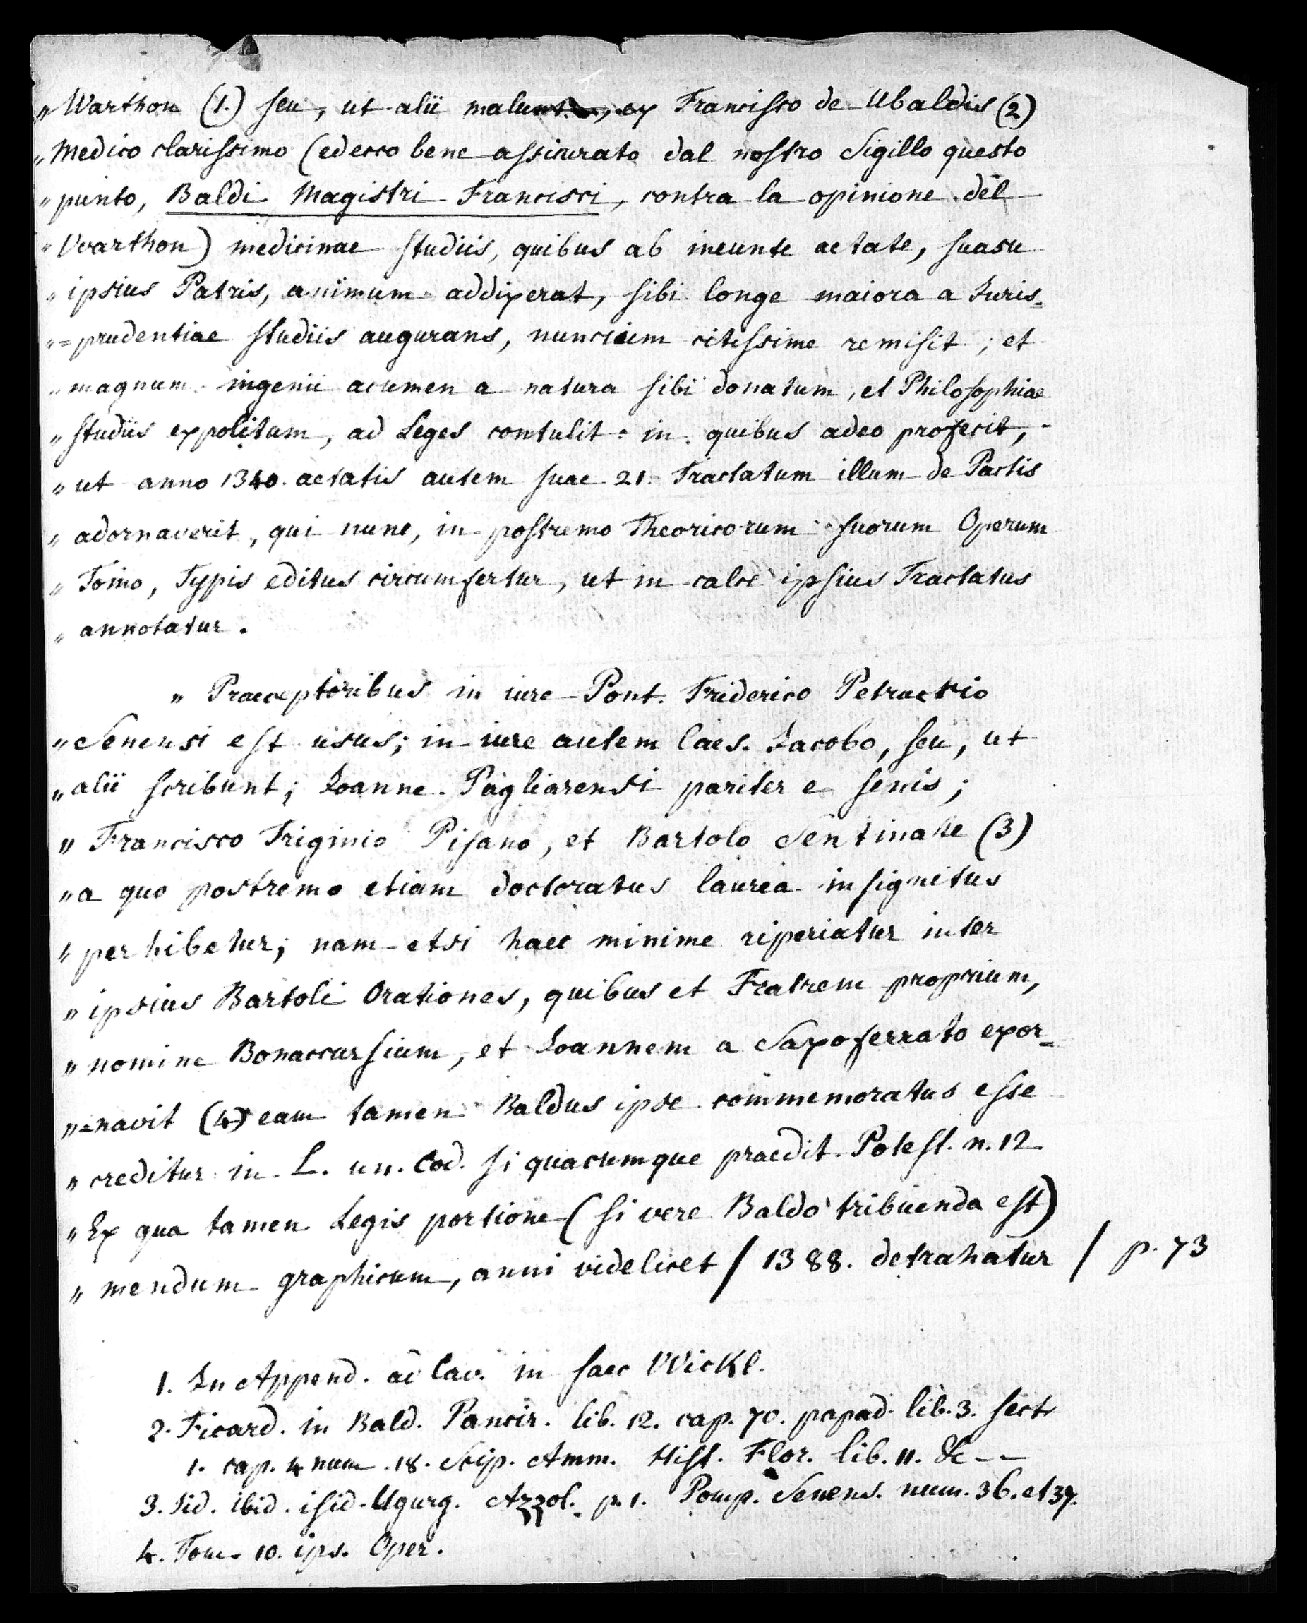 „ Warthon (1.) seu, ut alii malunt, ex Francisco de Ubaldis (2)
„ Medico clarissimo (ed ecco bene assicurato dal nostro Sigillo questo
„ punto, Baldi Magistri Francisci, contra la opinione del
„ Vvarthon) medicinae studiis, quibus ab ineunte aetate, suasu
„ ipsius Patris, animum addixerat, sibi longe maiora a Juris=
„ =prudentiae studiis augurans, nuncium citissime remisit; et
„ magnum ingenii acumen a natura sibi donatum, et Philosophiae
„ studiis expolitam, ad Leges contulit: in quibus adeo profecit,
„ ut anno 1340. aetatis autem suae 21. Tractatum illum de Pactis
„ adornaverit, qui nunc, in postremo Theoricorum suorum Operum
„ Tomo, Typis editus circumfertur, ut in calce ipsius Tractatus
„ annotatur.
„ Praeceptoribus in iure Pont. Friderico Petruccio
„ Senensi est usus; in iure autem Caes. Jacobo, seu, ut
„ alii scribunt; Joanne Pagliarensi pariter e Senis;
„ Francisco Triginio Pisano, et Bartolo Sentinate (3)
„ a quo postremo etiam doctoratus laurea insignitus
„ perhibetur; nam etsi haec minime riperiatur inter
„ ipsius Bartoli Orationes, quibus et Fratrem proprium,
„ nomine Bonaccursium, et Joannem a Saxoferrato exor=
„ =navit (4) eam tamen Baldus ipse commemoratus esse
„ creditur in L. un. Cod. si quacumque praedit. Potest. n. 12
„ Ex qua tamen Legis portione (si vere Baldo tribuenda est)
„ mendum graphicum, anni videlicet / 1388. detrahatur / p. 73
1. In Append. ad Cav. in saec VVickl.
2. Ficard. in Bald. Pancir. lib. 12. cap. 70. papad. lib. 3. sect.
1. cap. 4 num. 18. Scip. Amm. Hist. Flor. lib. 11. &c --
3. Iid. ibid. isid. Ugurg. Azzol. p. 1. Pomp. Senens. num. 36. et 37.
4. Tom. 10. ips. Oper.